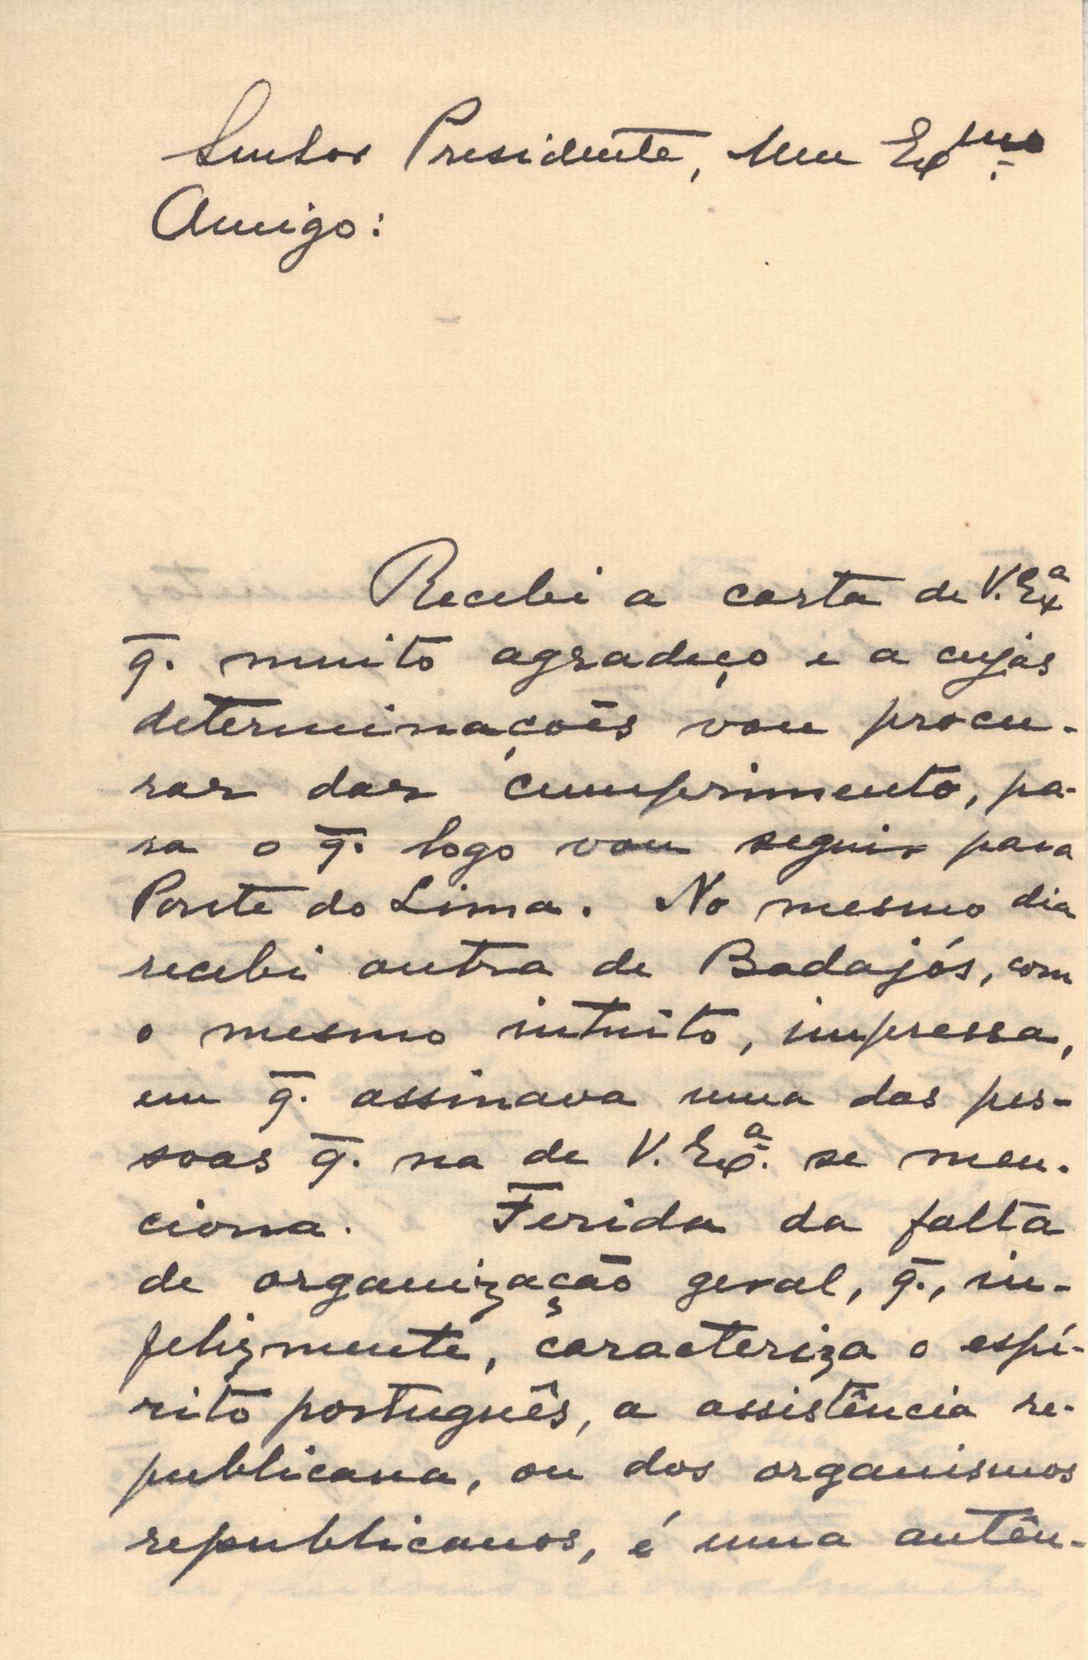 Senhor Presidente, Meu Exmo
Amigo:
Recebi a carta de V. Exª
q̄. muito agradeço e a cujas
determinações vou procu-
rar dar cumprimento, pa-
ra o q̄. logo vou seguir para
Ponte do Lima. No mesmo dia
recebi outra de Badajós, com
o mesmo intuito, impressa,
em q̄. assinava uma das pes-
soas q̄. na de V. Exª. se men-
ciona. Ferida da falta
de organização geral, q̄., in-
felizmente, caracteriza o espí-
rito português, a assistência re-
publicana, ou dos organismos
republicanos, é uma autên-